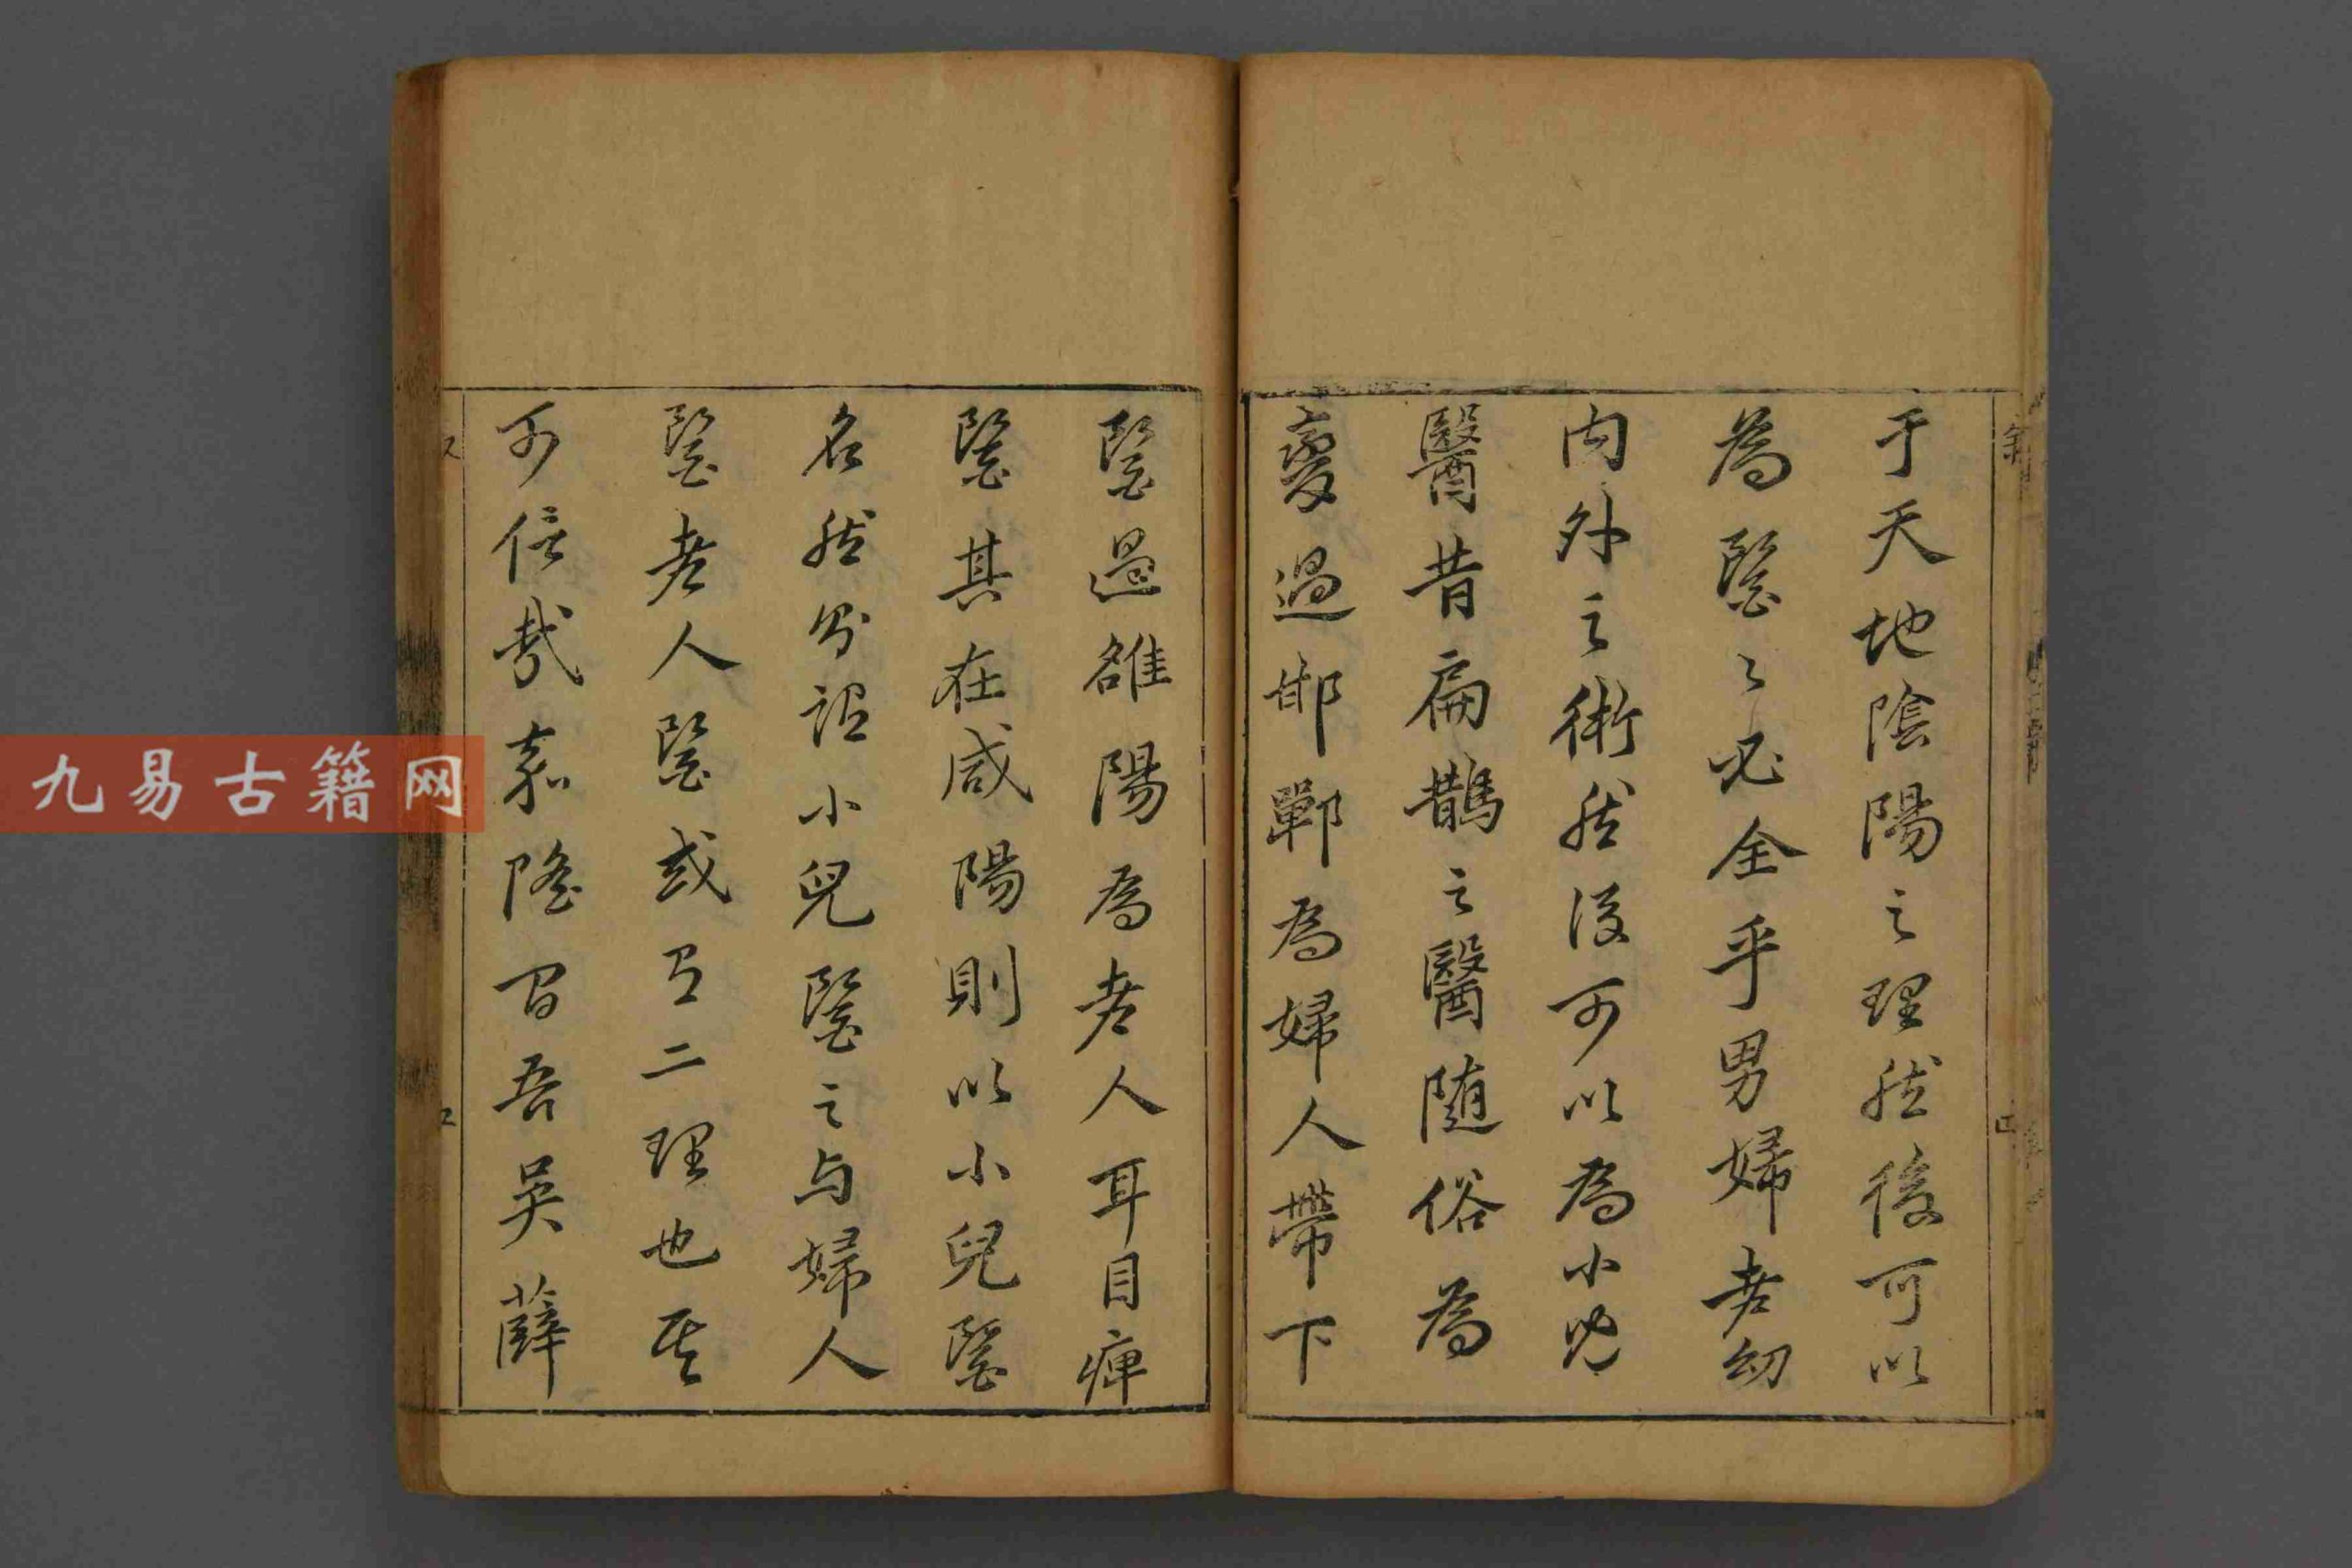 于天地陰陽之理然後可以
為醫〻必全乎男婦老幼
内外之術然後可以為小兒
醫昔扁鵲之醫随俗為
變過邯鄲為婦人帶下
醫過雒陽為老人耳目痺
醫其在咸陽則以小兒醫
名然則謂小兒醫之与婦人
醫老人醫或有二理也其
可信哉嘉隆間吾吴薛
九易古籍网